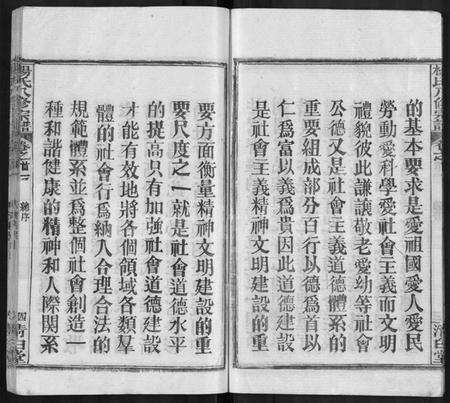 的基本要求是愛祖國愛人愛民
勞動愛科學愛社會主義而文明
禮貌彼此謙讓敬老愛幼等社會
公德又是社會主義道德體系的
重要組成部分百行以德為首以
仁爲富以義爲貴因此道德建設
是社會主義精神文明建設的重
要方面衡量精神文明建設的重
要尺度之一就是社會道德水平
的提高只有加強社會道德建設
才能有效地將各個領域各類羣
體的社會行爲納入合理合法的
規範體系並爲整個社會創造一
種和諧健康的精神和人際關系
楊氏八修宗譜
卷之首下
總序
四
清白堂
楊氏八修宗譜
清白堂